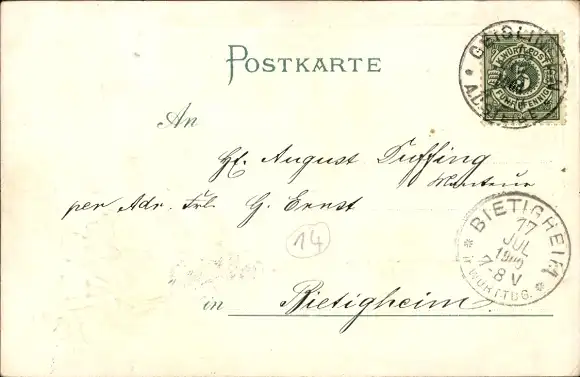 POSTKARTE
K. WÜRTT. POST
5
FÜNF PFENNIG
GEISLINGEN
A.D. STEIGE
An
H. August Duffing
Monteur
per Adr. Frl. G. Ernst
14
BIETIGHEIM
17
JUL
7-8 V
WÜRTTBG.
in Bietigheim